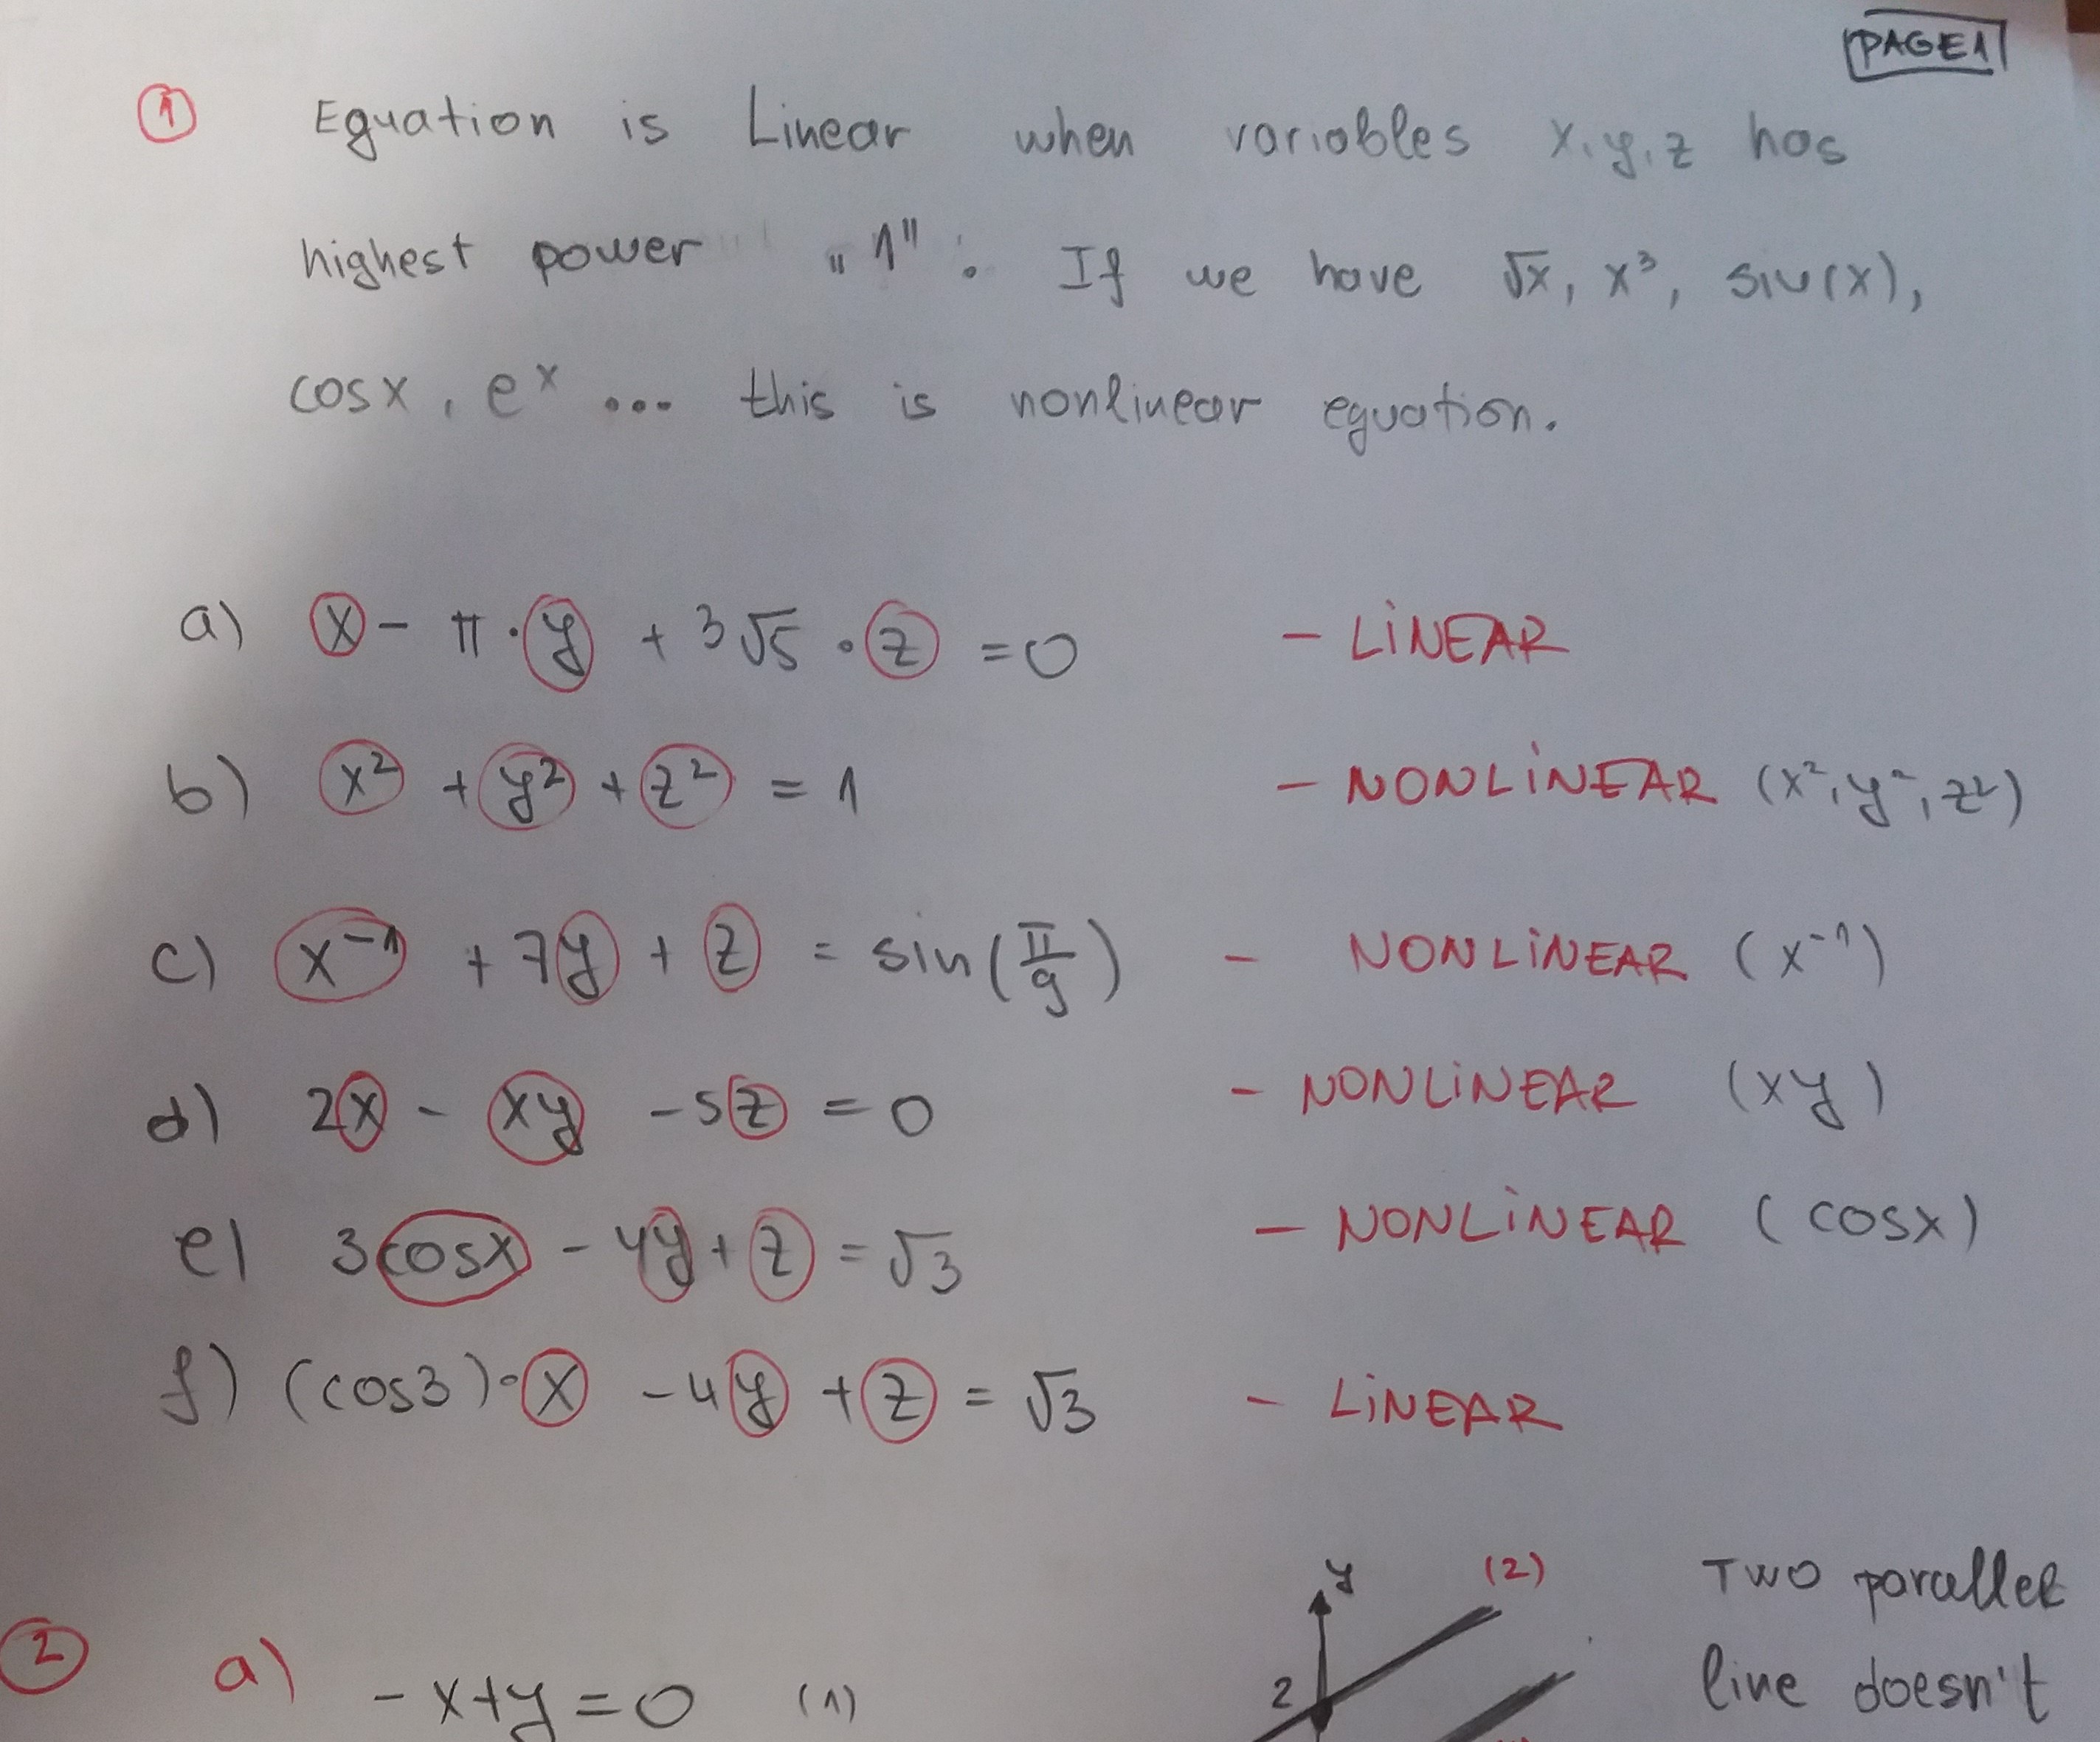 PAGE1
1 Equation is Linear when variables x, y, z has
highest power „1". If we have √x, x³, sin(x),
cosx, eˣ ... this is nonlinear equation.
a) x - π·y + 3√5·z = 0 - LINEAR
b) x² + y² + z² = 1 - NONLINEAR (x², y², z²)
c) x⁻¹ + 7y + z = sin(π/9) - NONLINEAR (x⁻¹)
d) 2x - xy - 5z = 0 - NONLINEAR (xy)
e) 3cosx - 4y + z = √3 - NONLINEAR (cosx)
f) (cos3)·x - 4y + z = √3 - LINEAR
2 a) -x+y=0 (1)
y (2)
2
TWO parallel
line doesn't